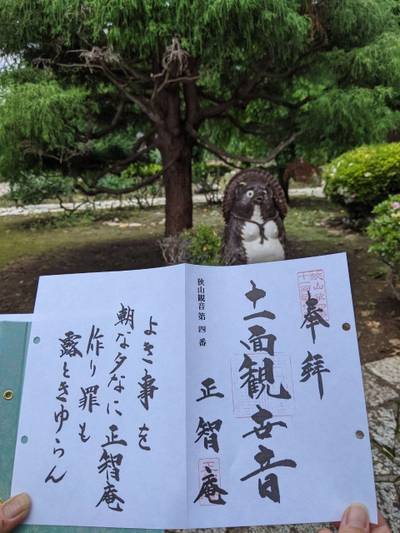 奉拝
十一面観世音
狭山観音第四番
正智庵
よき事を
朝な夕なに正智庵
作り罪も
露ときゆらん